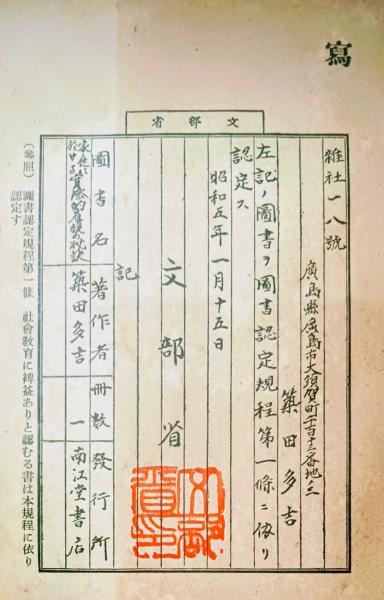 寫
文部省
雜社一八號
廣島縣廣島市大須賀町百十三番地ノ三
築田多吉
左記ノ圖書ヲ圖書認定規程第一條ニ依リ
認定ス
昭和五年一月十五日
文部省
文部省印
記
圖書名 著作者 冊數 發行所
家庭に於ける實際的看護の秘訣 築田多吉 一 南江堂書店
(參照) 圖書認定規程第一條 社會教育に裨益ありと認むる書は本規程に依り
認定す